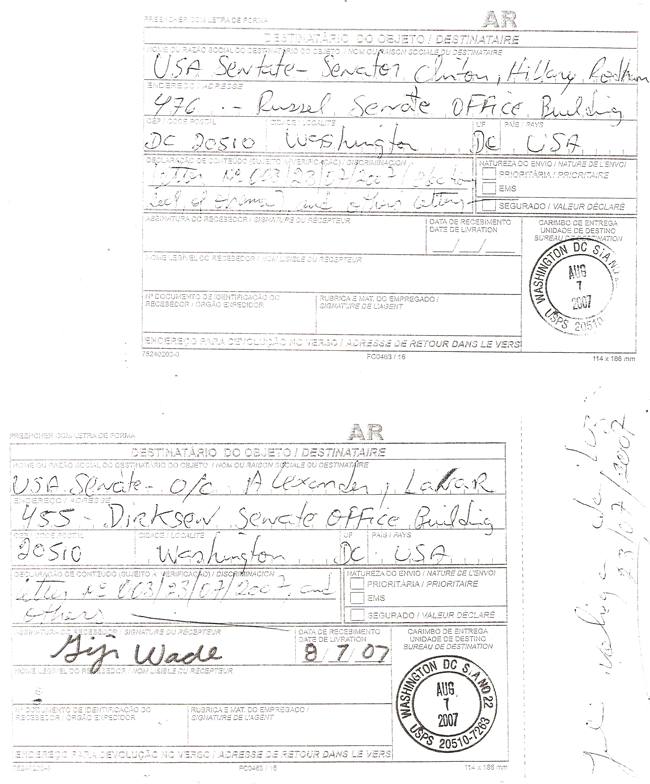 PREENCHER COM LETRA DE FORMA
AR
DESTINATÁRIO DO OBJETO / DESTINATAIRE
NOME OU RAZÃO SOCIAL DO DESTINATÁRIO DO OBJETO / NOM OU RAISON SOCIALE DU DESTINATAIRE
USA Senate - Senator Clinton, Hillary Rodham
ENDEREÇO / ADRESSE
476 - Russel Senate OFFice Building
CEP / CODE POSTAL CIDADE / LOCALITÉ UF PAÍS / PAYS
DC 20510 Washington DC USA
DECLARAÇÃO DE CONTEÚDO (SUJEITO À VERIFICAÇÃO) / DISCRIMINACION
NATUREZA DO ENVIO / NATURE DE L'ENVOI
Letter Nº 003/23/07/2007
PRIORITÁRIA / PRIORITAIRE
EMS
and others letters
SEGURADO / VALEUR DÉCLARÉ
ASSINATURA DO RECEBEDOR / SIGNATURE DU RÉCEPTEUR
DATA DE RECEBIMENTO
DATE DE LIVRATION
CARIMBO DE ENTREGA
UNIDADE DE DESTINO
BUREAU DE DESTINATION
NOME LEGÍVEL DO RECEBEDOR / NOM LISIBLE DU RÉCEPTEUR
WASHINGTON DC
AUG
7
2007
USPS 20510
Nº DOCUMENTO DE IDENTIFICAÇÃO DO
RECEBEDOR / ÓRGÃO EXPEDIDOR
RUBRICA E MAT. DO EMPREGADO /
SIGNATURE DE L'AGENT
ENDEREÇO PARA DEVOLUÇÃO NO VERSO / ADRESSE DE RETOUR DANS LE VERS
75240203-0 FC0463 / 16 114 x 186 mm
PREENCHER COM LETRA DE FORMA
AR
DESTINATÁRIO DO OBJETO / DESTINATAIRE
NOME OU RAZÃO SOCIAL DO DESTINATÁRIO DO OBJETO / NOM OU RAISON SOCIALE DU DESTINATAIRE
USA Senate - O/c Alexander, LaMAR
ENDEREÇO / ADRESSE
455 - Dirksen Senate OFFice Building
CEP / CODE POSTAL CIDADE / LOCALITÉ UF PAÍS / PAYS
20510 Washington DC USA
DECLARAÇÃO DE CONTEÚDO (SUJEITO À VERIFICAÇÃO) / DISCRIMINACION
NATUREZA DO ENVIO / NATURE DE L'ENVOI
Letter Nº 003/23/07/2007, and
PRIORITÁRIA / PRIORITAIRE
EMS
others
SEGURADO / VALEUR DÉCLARÉ
ASSINATURA DO RECEBEDOR / SIGNATURE DU RÉCEPTEUR
DATA DE RECEBIMENTO
DATE DE LIVRATION
CARIMBO DE ENTREGA
UNIDADE DE DESTINO
BUREAU DE DESTINATION
Wade 8/7/07
NOME LEGÍVEL DO RECEBEDOR / NOM LISIBLE DU RÉCEPTEUR
WASHINGTON DC S.A.NO 22
AUG
7
2007
USPS 20510-7263
Nº DOCUMENTO DE IDENTIFICAÇÃO DO
RECEBEDOR / ÓRGÃO EXPEDIDOR
RUBRICA E MAT. DO EMPREGADO /
SIGNATURE DE L'AGENT
ENDEREÇO PARA DEVOLUÇÃO NO VERSO / ADRESSE DE RETOUR DANS LE VERS
75240203-0 FC0463 / 16 114 x 186 mm
23/07/2007